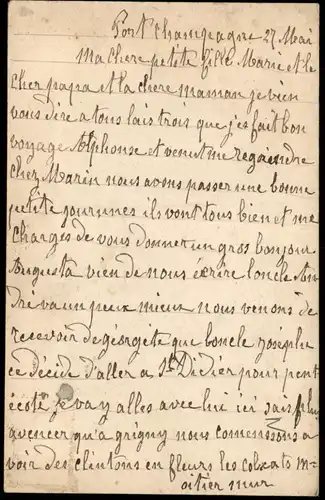 Port Champagne 27 Mai
ma chere petite fille Marie et le
cher papa et la chere maman je vien
vous dire a tous lais trois que j'es fait bon
voyage Alphonse et venut me regoindre
chez Marin nous avons passer une bonne
petite journnes ils vont tous bien et me
charges de vous donner un gros bonjour
Augusta vien de nous écrire loncle An
dre va un peux mieux nous venons de
recevoir de géorgete que loncle joseph
ce décide d'aller a St Didier pour pent
écoté je vay alles avec lui ici sais plus
avencer qu'a grigny nous comensons a
voir des clintons en fleurs les cobxats m
oitier mur